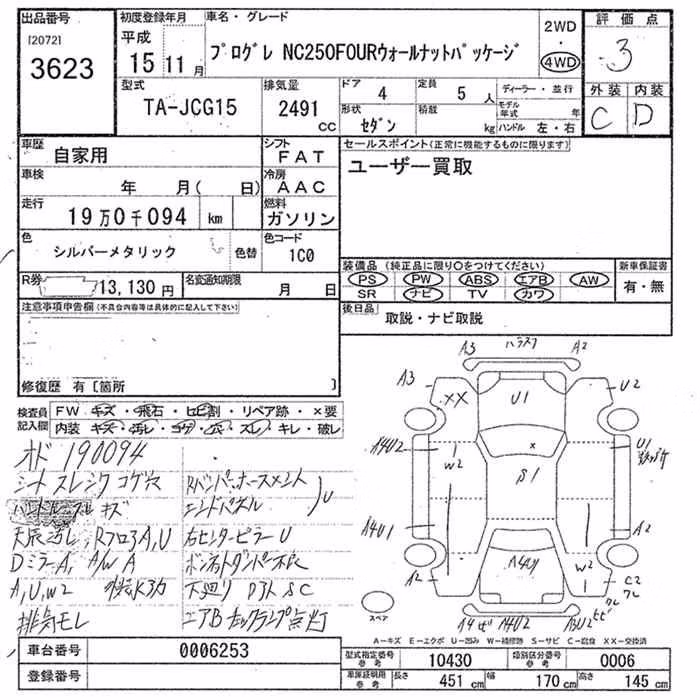 出品番号
[2072]
3623
初度登録年月
平成
15年11月
車名・グレード
プログレ NC250FOURウォールナットパッケージ
2WD
・
4WD
評価点
3
外装 内装
C D
型式
TA-JCG15
排気量
2491
CC
ドア 4
定員 5 人
ディーラー・並行
モデル年式 年
形状 セダン
積載 kg
ハンドル 左・右
車歴 自家用
シフト FAT
車検 年 月( 日)
冷房 AAC
走行 19万0千094 km
燃料 ガソリン
色 シルバーメタリック 色替
色コード 1C0
R券 13,130円
名変通知期限 月 日
セールスポイント(正常に機能するものに限ります)
ユーザー買取
装備品(純正品に限り○をつけてください)
PS PW ABS エアB AW
SR ナビ TV カワ
新車保証書
有・無
後日品 取説・ナビ取説
注意事項申告欄(不具合内容等は具体的に記入して下さい)
修復歴 有[箇所 ]
検査員記入欄
FW キズ・飛石・ヒビ割・リペア跡・×要
内装 キズ・汚レ・コゲ・穴・スレ・キレ・破レ
オド 190094
シート スレ シワ コゲ穴
ハンドル スレ キズ
天張汚レ
Dミラー A, A/W A
A,U,W2
排気モレ
Rバンパーホースメント
エンドパネル
U
右センターピラー U
ボンネットダンパー不良
下廻り
エアB
点灯
A3
A2
A3
XX
U1
U2
A4U2
W2
S1
×
U1
A4U1
A2
A2
W2
C2
A4U1
A4U2
スペア
A-キズ E-エクボ U-凹み W-補修跡 S-サビ C-腐食 XX-交換済
車台番号 0006253
登録番号
型式指定番号 参考 10430
類別区分番号 参考 0006
車庫証明用 参考 長さ 451 cm 幅 170 cm 高さ 145 cm